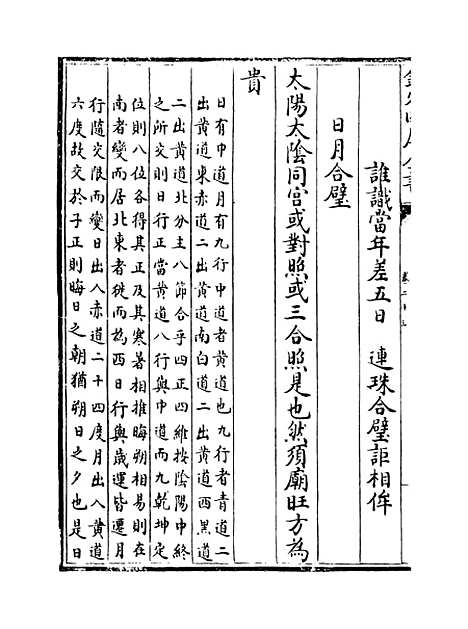 誰識當年差五日　連珠合璧詎相侔
日月合璧
太陽太陰同宫或對照或三合照是也然須廟旺方為
貴
日有中道月有九行中道者黄道也九行者青道二
出黄道東赤道二出黄道南白道二出黄道西黒道
二出黄道北分主八節合乎四正四維按隂陽中終
之所交則日行正當黄道八行與中道而九乾坤定
位則八位各得其正及其寒暑相推晦朔相易則在
南者變而居北東者徙而為西日行與歳運皆遷月
行隨交限而變日出入赤道二十四度月出入黄道
六度故交於子正則晦日之朝猶朔日之夕也是日